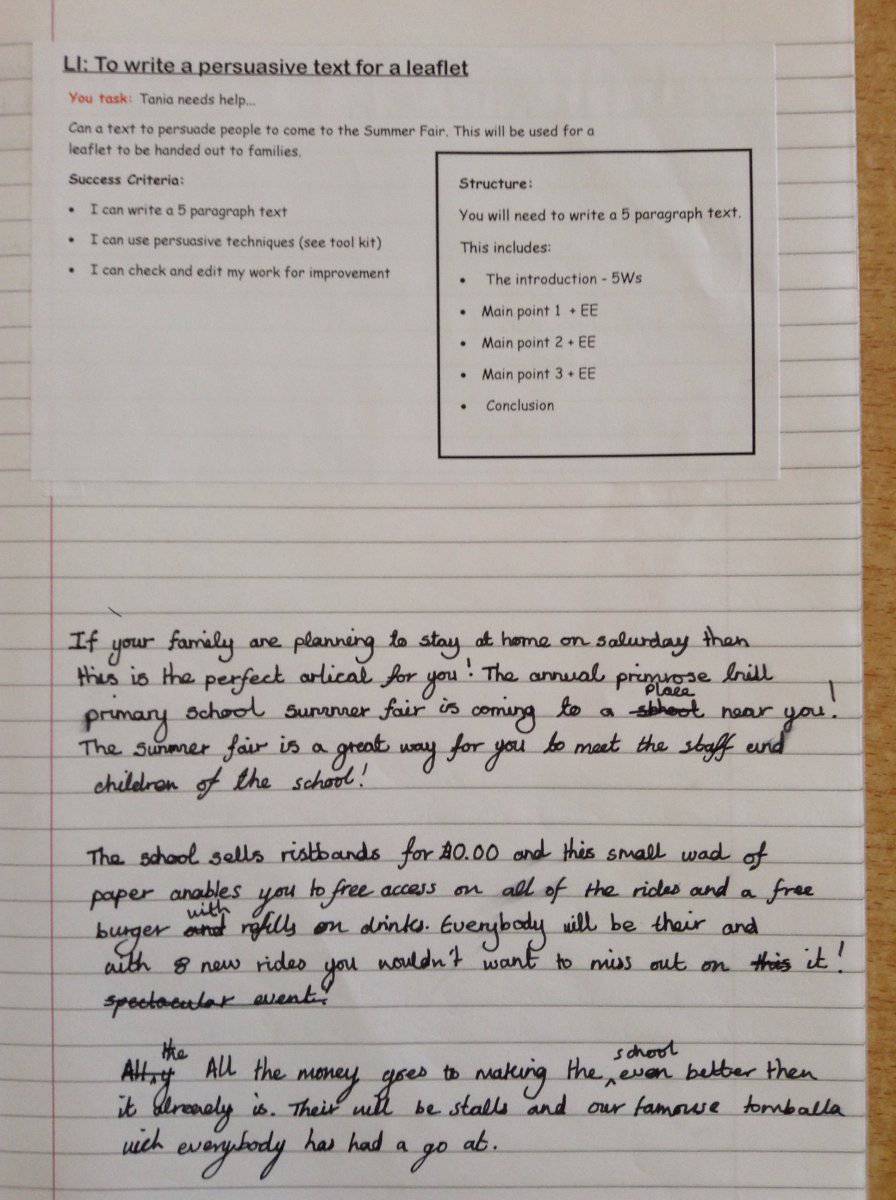 LI: To write a persuasive text for a leaflet
You task: Tania needs help...
Can a text to persuade people to come to the Summer Fair. This will be used for a
leaflet to be handed out to families.
Success Criteria:
• I can write a 5 paragraph text
• I can use persuasive techniques (see tool kit)
• I can check and edit my work for improvement
Structure:
You will need to write a 5 paragraph text.
This includes:
• The introduction - 5Ws
• Main point 1 + EE
• Main point 2 + EE
• Main point 3 + EE
• Conclusion
If your family are planning to stay at home on saturday then
this is the perfect artical for you! The annual primrose hill
place
primary school summer fair is coming to a school near you!
The summer fair is a great way for you to meet the staff and
children of the school!
The school sells ristbands for and this small wad of
paper anables you to free access on all of the rides and a free
with
burger and refills on drinks. Everybody will be their and
with 8 new rides you wouldn't want to miss out on this it!
spectacular event!
the school
All the money goes to making the even better then
it already is. Their will be stalls and our famouse tomballa
wich everybody has had a go at.